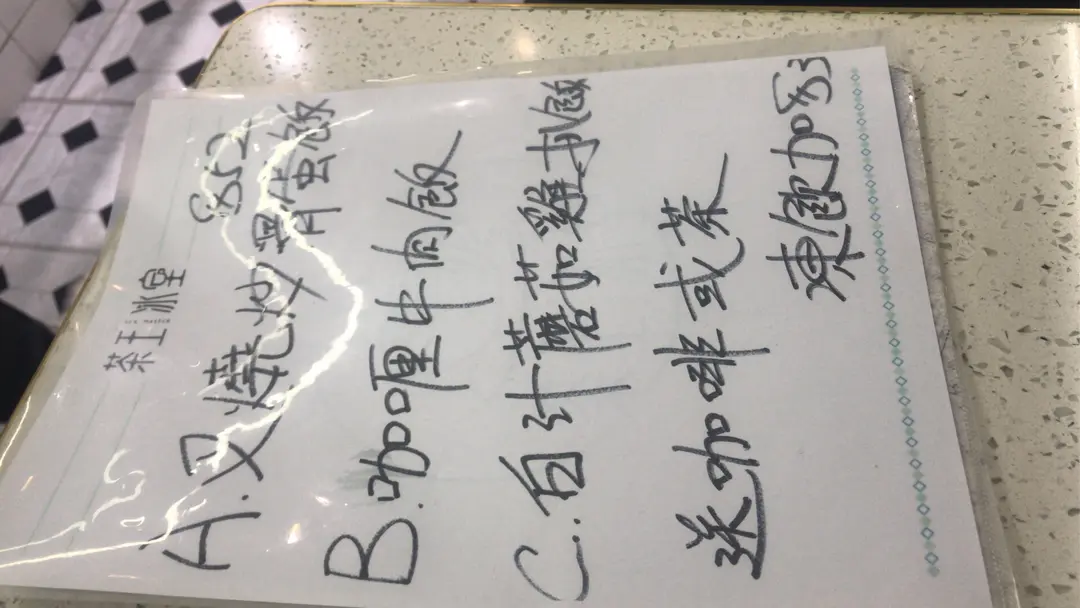 茶王冰堂
$52
A.叉燒炒滑蛋飯
B.咖喱牛肉飯
C.白汁蘑菇雞扒飯
送咖啡或茶
凍飲加$3